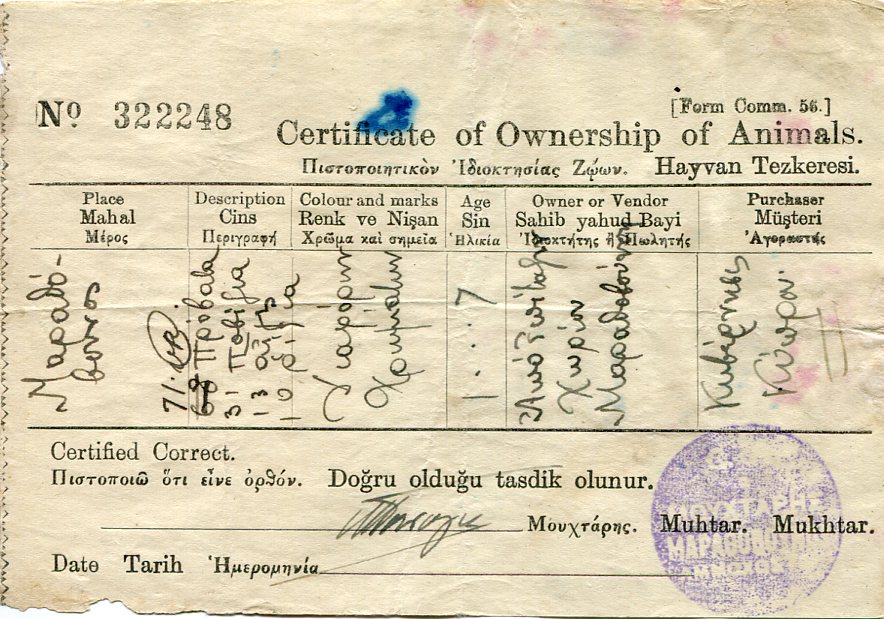 Nº 322248
[Form Comm. 56.]
Certificate of Ownership of Animals.
Πιστοποιητικὸν Ἰδιοκτησίας Ζῴων. Hayvan Tezkeresi.
Place
Mahal
Μέρος
Description
Cins
Περιγραφή
Colour and marks
Renk ve Nişan
Χρῶμα καὶ σημεῖα
Age
Sin
Ἡλικία
Owner or Vendor
Sahib yahud Bayi
Ἰδιοκτήτης ἢ Πωλητής
Purchaser
Müşteri
Ἀγοραστής
Μαραθό-
βουνος
Πρόβατα
31
13
10
1...7
Χωρίον
Μαραθοβούνου
Κυβέρνησις
Κύπρου
Certified Correct.
Πιστοποιῶ ὅτι εἶνε ὀρθόν. Doğru olduğu tasdik olunur.
Μουχτάρης. Muhtar. Mukhtar.
Date Tarih Ἡμερομηνία
ΜΟΥΧΤΑΡΗΣ